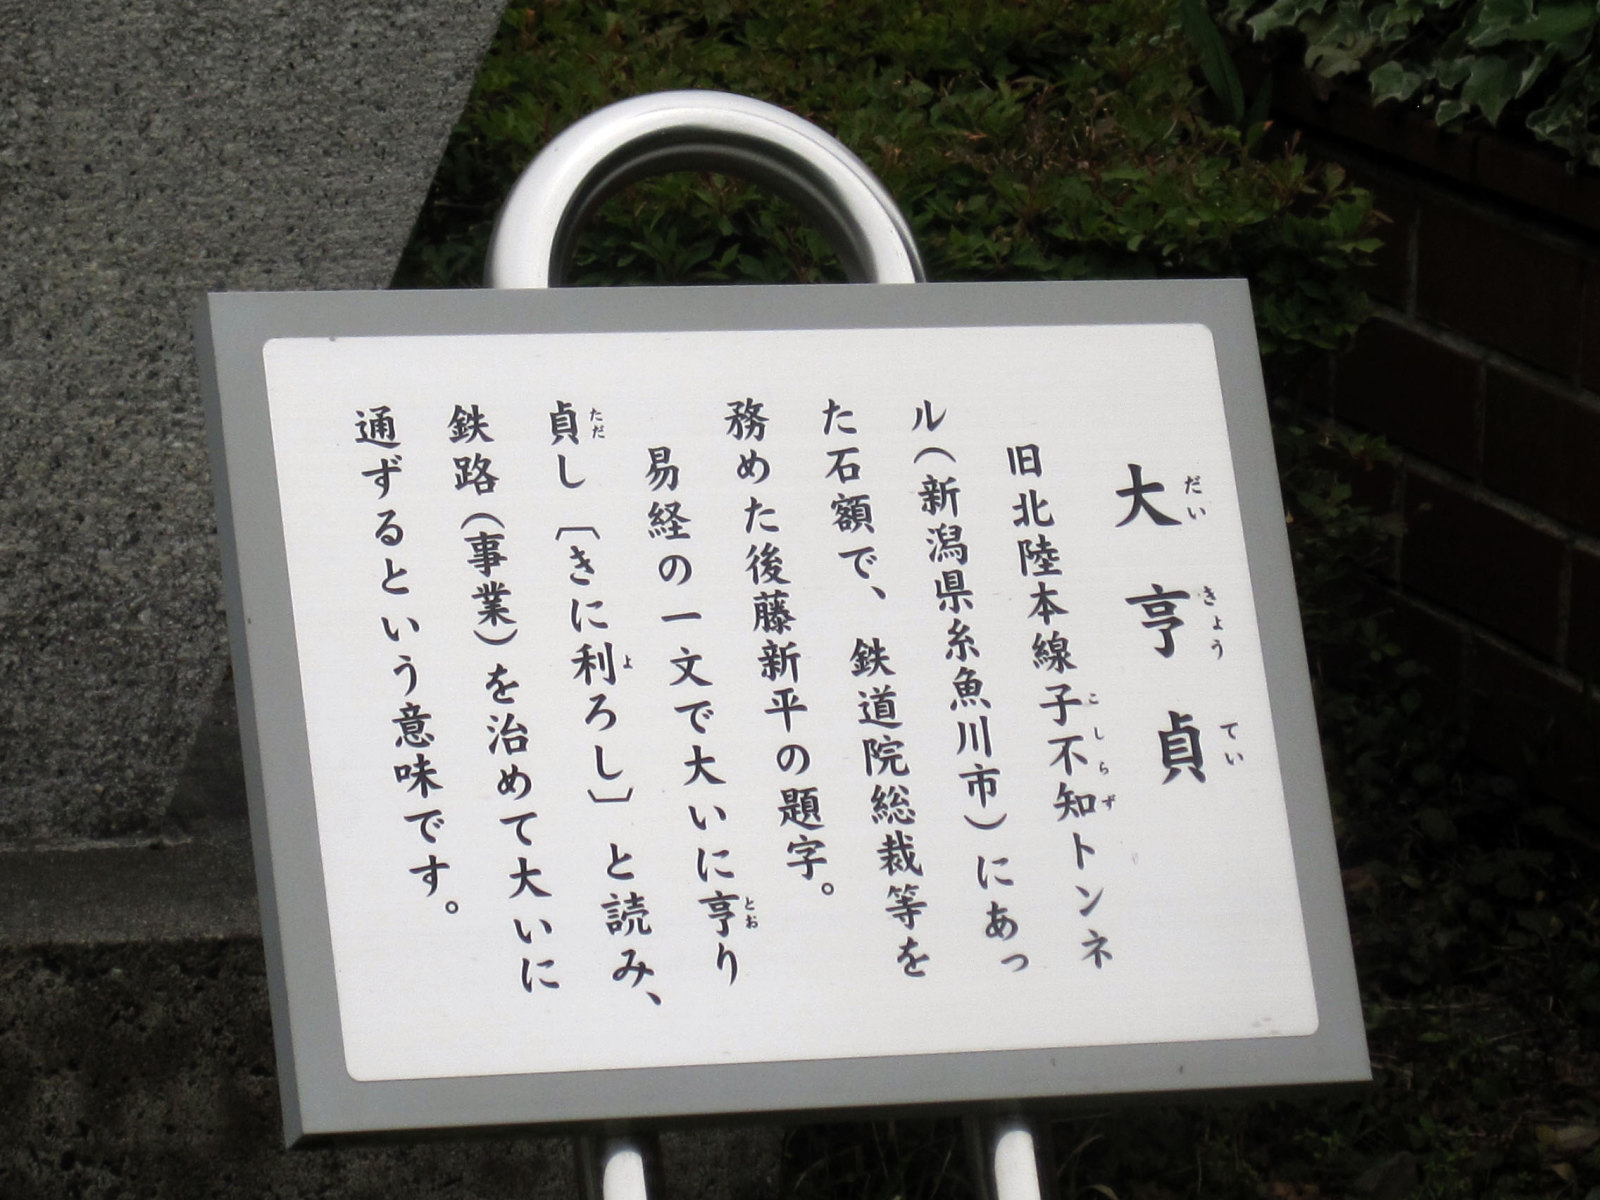 大亨貞
だいきょうてい
旧北陸本線子不知トンネ
こしらず
ル(新潟県糸魚川市)にあっ
た石額で、鉄道院総裁等を
務めた後藤新平の題字。
易経の一文で大いに亨り
とお
貞し〔きに利ろし〕と読み、
ただ
よ
鉄路(事業)を治めて大いに
通ずるという意味です。